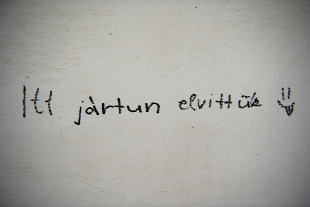 Itt jártun elvittük